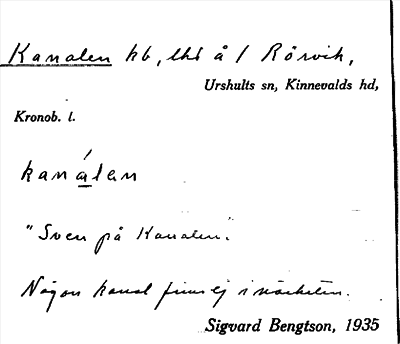 Kanalen hb, lht å 1 Rörvik,
Urshults sn, Kinnevalds hd,
Kronob. l.
kanálen
"Sven på Kanalen".
Någon kanal finns ej i närheten.
Sigvard Bengtson, 1935